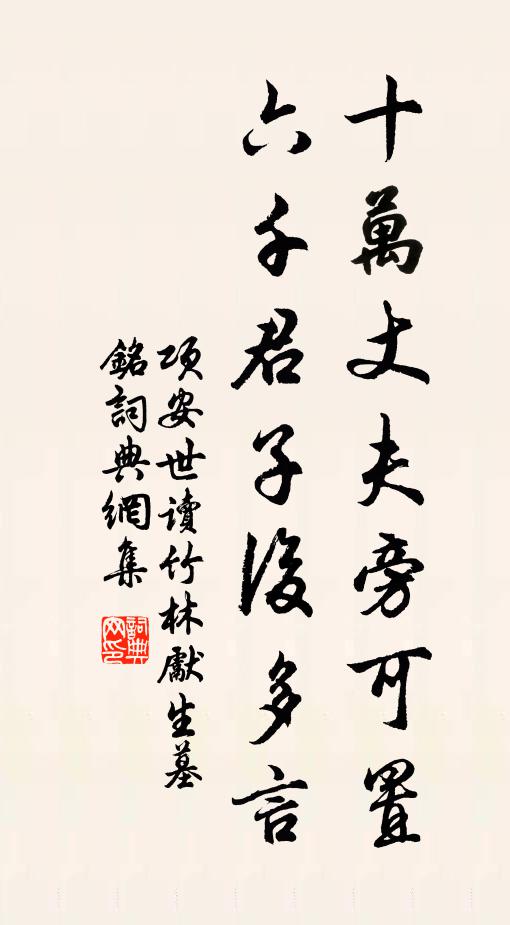 十萬丈夫旁可置
六千君子後多言
項安世讀竹林獻生墓
銘詞典網集
詞典網印